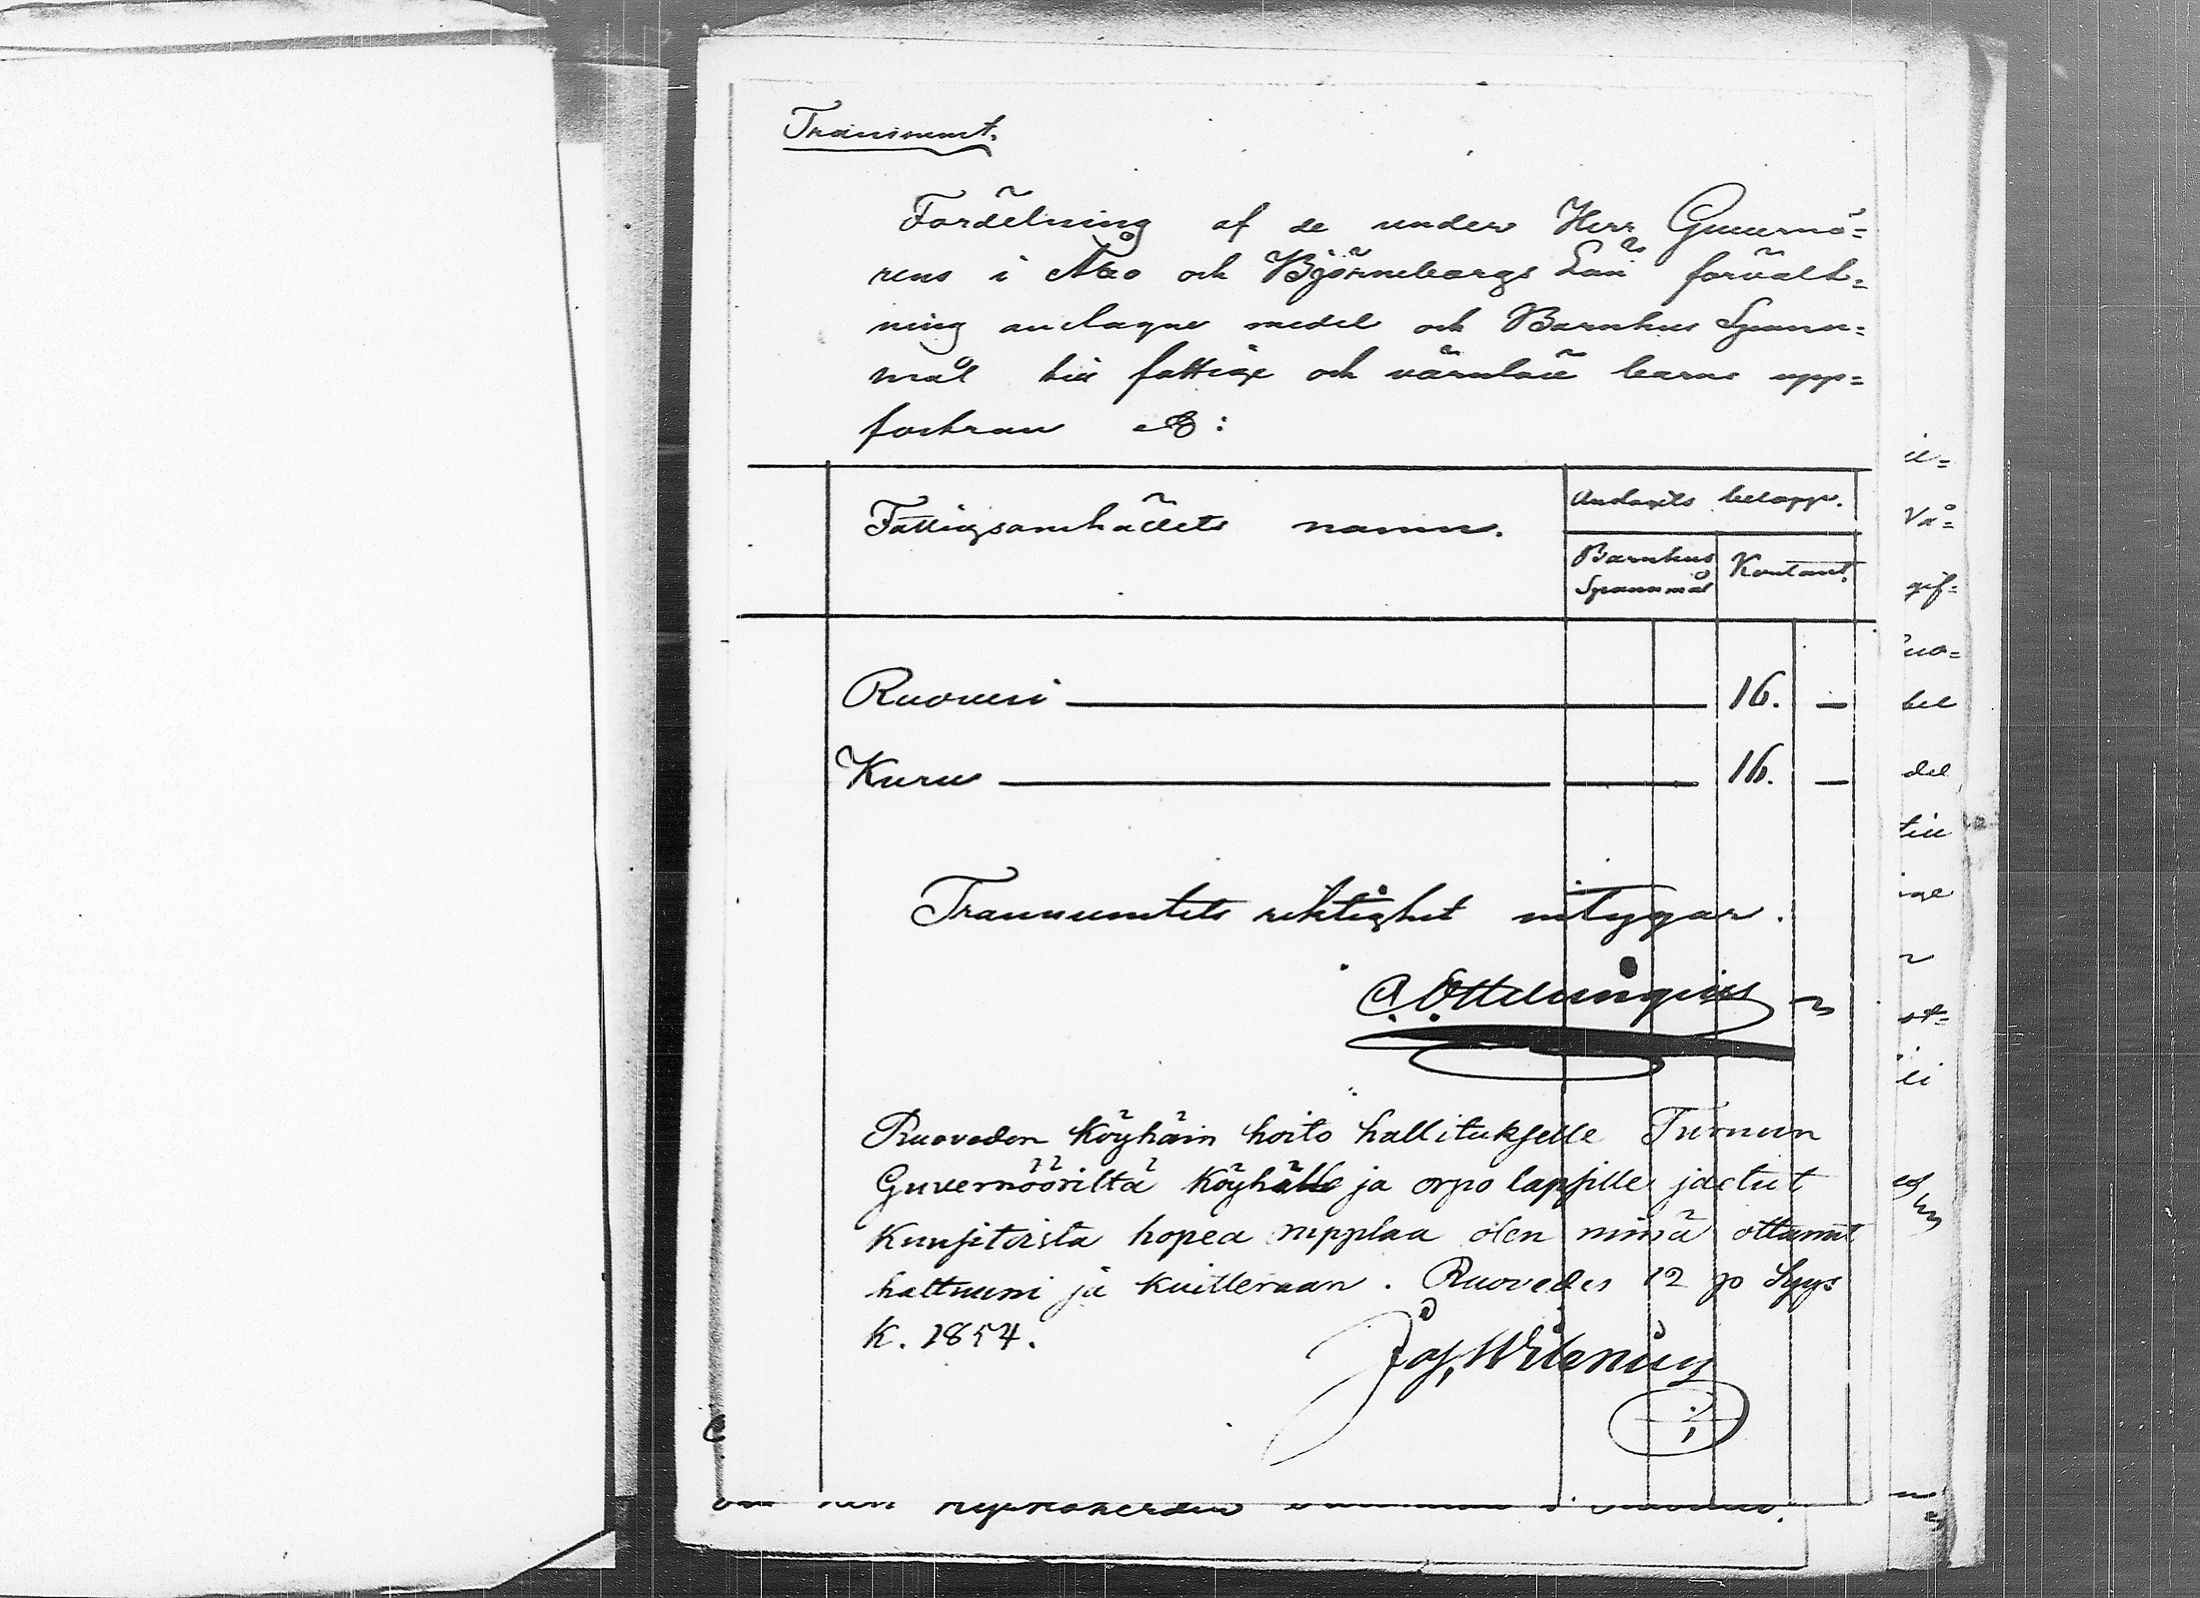 Transsumt.
Fördelning af de under Herr Guvernö=
rens i Åbo och Björneborgs Län förvalt=
ning anslagne medel och Barnhus Spanne=
mål till fattige och värnlöse barns upp=
fostran &:
Fattigsamhällets namn.
Andeels belopp.
Barnhus Kontant.
Spannmål
Ruovesi 16. —
Kuru 16. —
Transsumtets riktighet intygar.
Ruoveden köyhäin hoito hallitukselle Turuun
Guvernööriltä köyhälle ja orpo lapsille jaetut
Kuusitoista hopea rupplaa olen minä ottanut
haltuuni ja kuitteraan. Ruovedes 12 p Syys
K. 1854.
il=
Vå=
gif=
Ruo=
bel
del
till
ige
n
st=
li